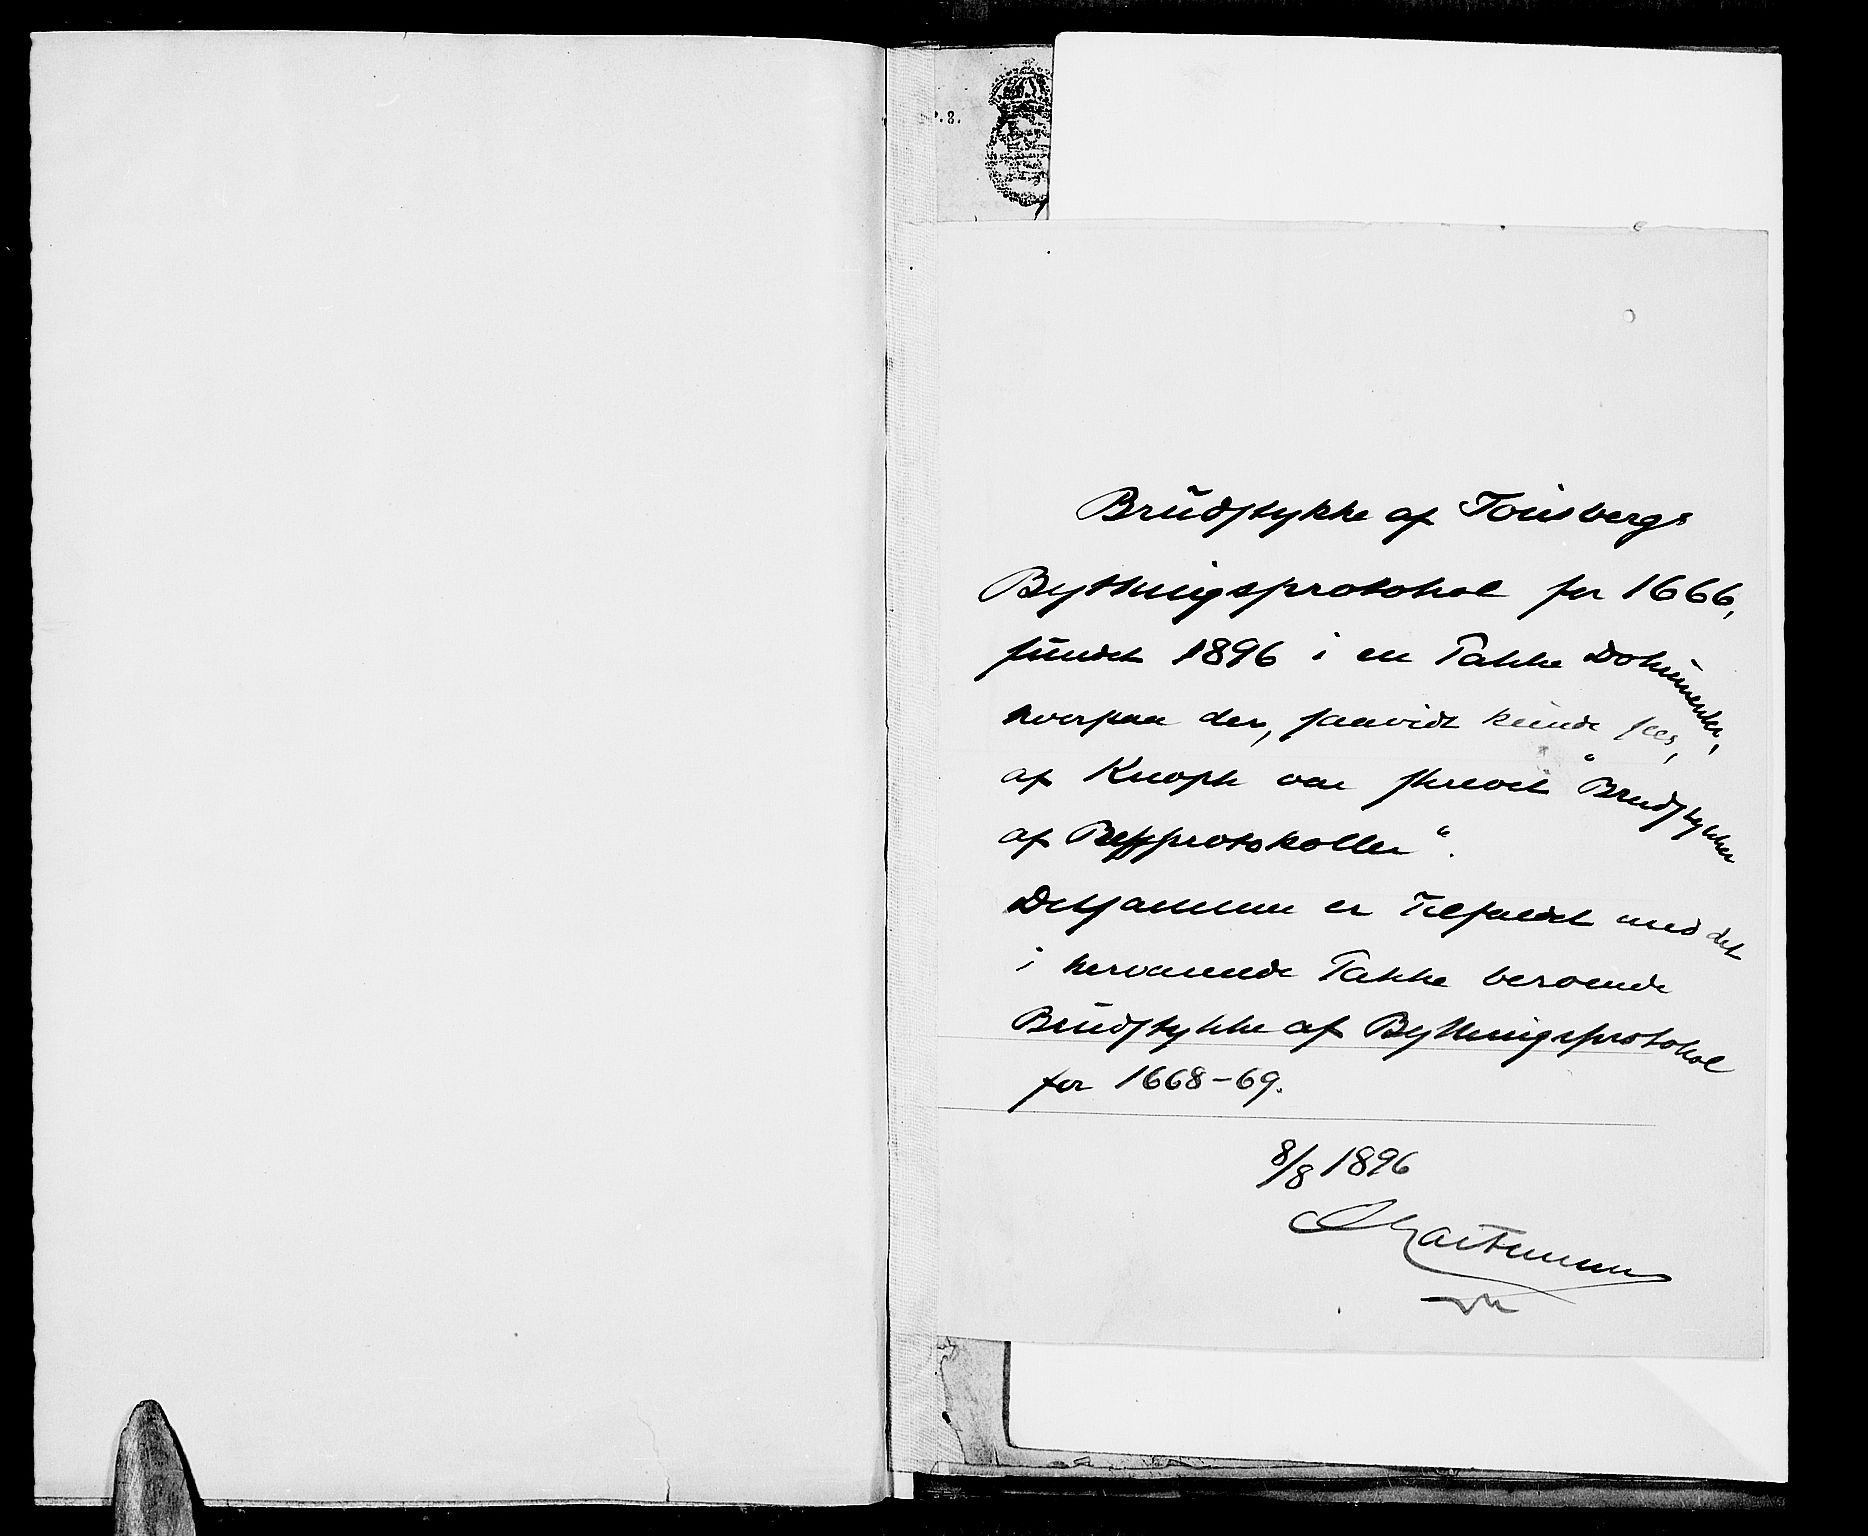 P. 8.
Brudstykke af Tønsbergs
Bythingsprotokol for 1666,
fundet 1896 i en Pakke Dokumenter,
hvorpaa der, saavidt kunde sees,
af Knoph var skrevet "Brudstykker
af Protokoller".
Detsammen er tilfældet med det
i herværende Pakke beroende
Brudstykke af Bythingsprotokol
for 1668-69.
8/8 1896